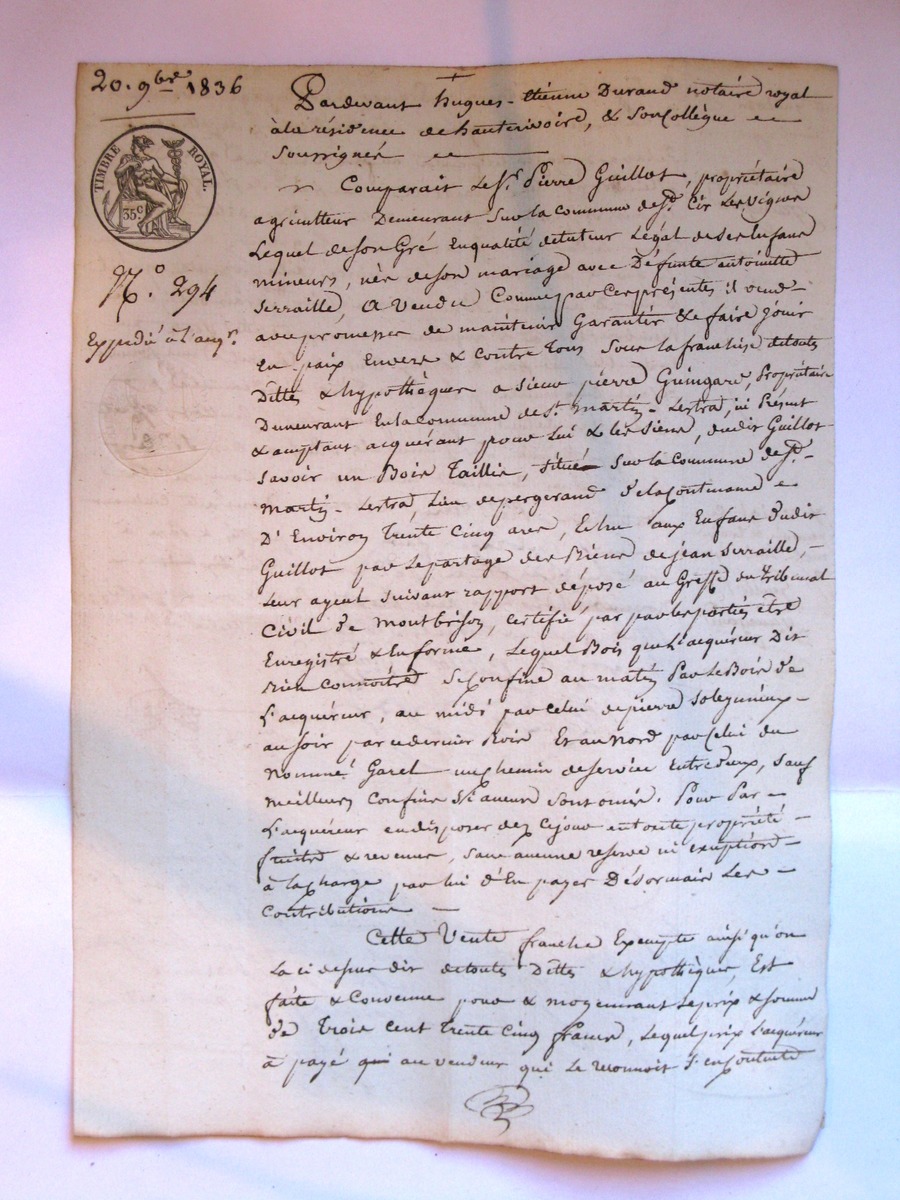 20. 9bre 1836
TIMBRE ROYAL.
35c
N.o 294
Expedié à L'acqr.
Pardevant hugues-étienne Durand notaire royal
à la résidence de hauterivoire, & son Collègue
Soussignés
Comparait Le Sr. Pierre Guillot, propriétaire
agriculteur Demeurant Sur la Commune de St. Cir Les vignes
Lequel de Son Gré En qualité de tuteur Légal de Ses Enfans
mineurs, nés de Son mariage avec Défunte antoinette
Serraille, A Vendu Comme par Ces présentes il vend
avec promesse de maintenir Garantir & faire Jouir
En paix Envers & Contre Tous Sous la franchise de touts
Dettes & hypothèques a Sieur pierre Guingard, Propriétaire
Demeurant En la Commune de St. Martin-Lestra, ici Présent
& acceptant acquérant pour Lui & les Siens, dudit Guillot
Savoir un Bois Taillis, Situé Sur la Commune de St.
Martin-Lestra, Lieu de pergerand De la Contenance
D'Environ Trente Cinq ares, Echu aux Enfans dudit
Guillot par Le partage des Biens de jean Serraille,
Leur ayeul Suivant rapport déposé au Greffe du Tribunal
Civil de Montbrison, Certifié par par les parties être
Enregistré & En forme, Lequel Bois que L'acquéreur Dit
bien Connoître Se Confine au matin Par Le Bois de
L'acquéreur, au midi par Celui de pierre
au Soir par ce dernier Bois Et au Nord par Celui du
Nommé Garel un Chemin de Service Entre deux, Sauf
meilleurs Confins Si aucuns Sont omis. Pour Par
L'acquéreur en disposer dez Ce jour en toute propriété
fruits & revenus, Sans aucune réserve ni exception
à la Charge par lui d'En payer Désormais Les
Contributions
Cette Vente franche Exempte ainsi qu'on
La ci dessus dit de touts Dettes & hypothèques, Est
faite & Convenue pour & moyennant Le prix & Somme
de Trois Cent Trente Cinq francs, Lequel prix L'acquéreur
a payé au vendeur qui Le reconnoit S'en Contente